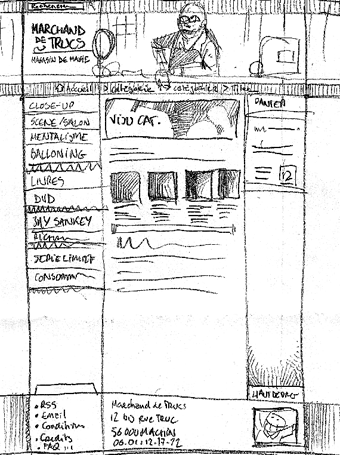 MARCHAND
DE TRUCS
MAGASIN DE MAGIE
Accueil > catégorie > catégorie >
CLOSE-UP
SCENE/SALON
MENTALISME
BALLOONING
LIVRES
DVD
JAY SANKEY
SERIE LIMITEE
CONSOMM
VISU CAT.
PANIER
12
HAUT DE PAG
• RSS
• Email
• Conditions
• Credits
• FAQ
Marchand de trucs
12 bis Rue TRUC
56000 MACHIN
06.01.12.17.22